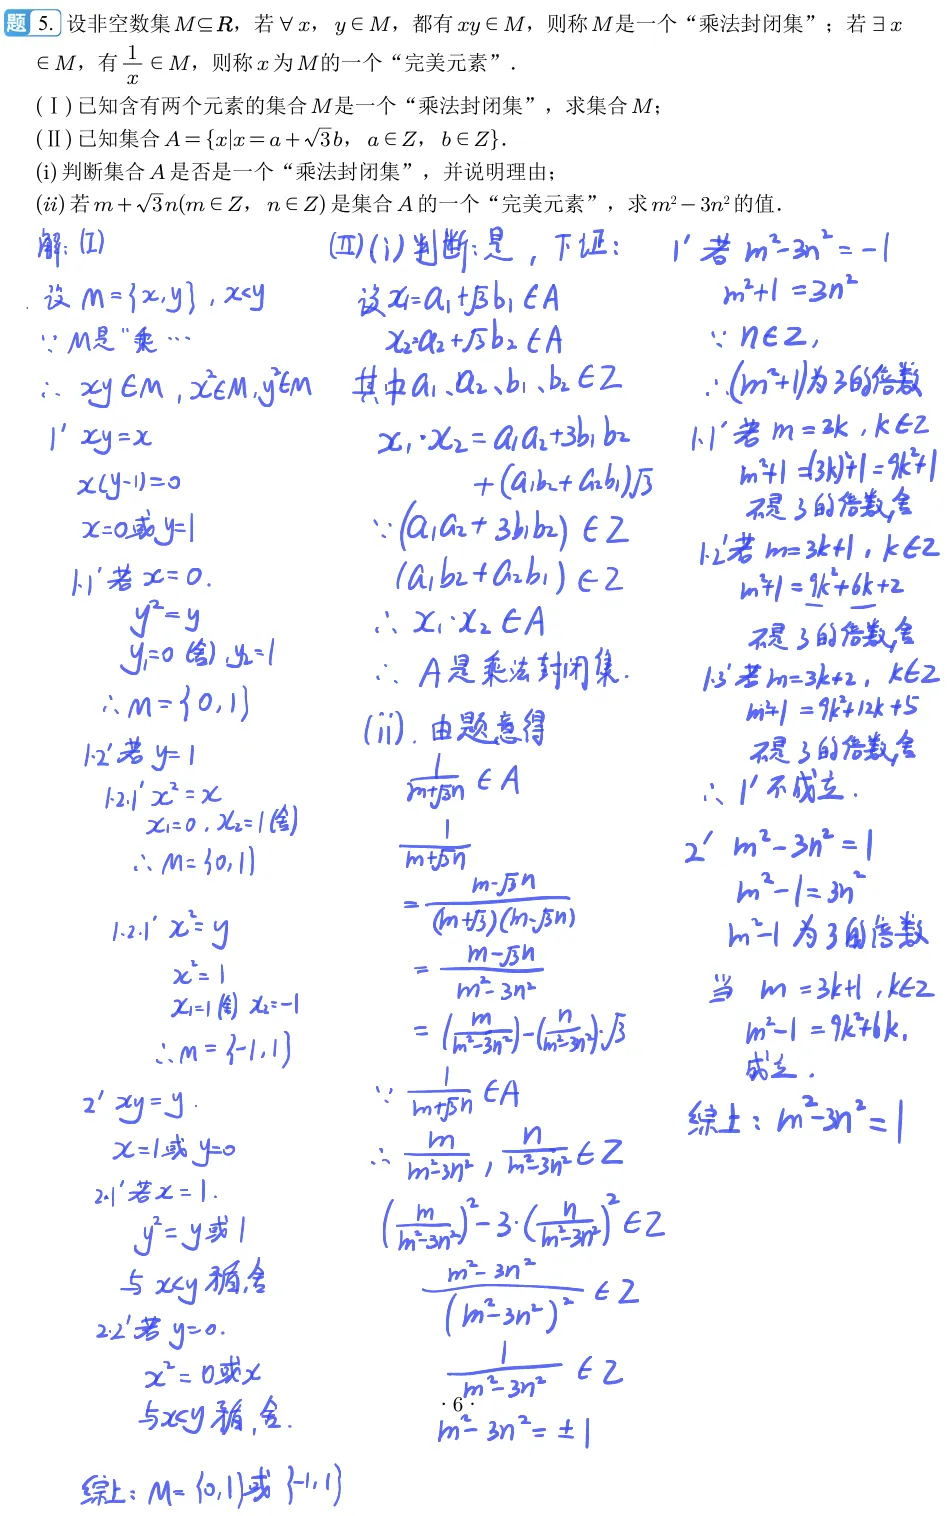 题 5. 设非空数集M⊆R，若∀x，y∈M，都有xy∈M，则称M是一个“乘法封闭集”；若∃x
∈M，有1/x∈M，则称x为M的一个“完美元素”．
(Ⅰ)已知含有两个元素的集合M是一个“乘法封闭集”，求集合M；
(Ⅱ)已知集合A={x|x=a+√3b，a∈Z，b∈Z}．
(i)判断集合A是否是一个“乘法封闭集”，并说明理由；
(ii)若m+√3n(m∈Z，n∈Z)是集合A的一个“完美元素”，求m²-3n²的值．
解：(I)
设 M={x,y}，x<y
∵ M是“乘…
∴ xy∈M，x²∈M，y²∈M
1' xy=x
x(y-1)=0
x=0或y=1
1.1' 若 x=0.
y²=y
y₁=0 (舍), y₂=1
∴ M={0,1}
1.2' 若 y=1
1.2.1' x²=x
x₁=0, x₂=1(舍)
∴ M={0,1}
1.2.1' x²=y
x²=1
x₁=1(舍) x₂=-1
∴ M={-1,1}
2' xy=y.
x=1或 y=0
2.1' 若x=1.
y²=y或1
与 x<y 矛盾,舍
2.2' 若 y=0.
x²=0或x
与x<y 矛盾,舍.
综上：M={0,1}或{-1,1}
(II)(i)判断：是，下证：
设x₁=a₁+√3b₁∈A
x₂=a₂+√3b₂∈A
其中a₁、a₂、b₁、b₂∈Z
x₁·x₂=a₁a₂+3b₁b₂
+(a₁b₂+a₂b₁)√3
∵(a₁a₂+3b₁b₂)∈Z
(a₁b₂+a₂b₁)∈Z
∴ x₁·x₂∈A
∴ A是乘法封闭集.
(ii). 由题意得
1/(m+√3n)∈A
1/(m+√3n)
=(m-√3n)/((m+√3)(m-√3n))
=(m-√3n)/(m²-3n²)
=(m/(m²-3n²))-(n/(m²-3n²))·√3
∵ 1/(m+√3n)∈A
∴ m/(m²-3n²), n/(m²-3n²)∈Z
(m/(m²-3n²))²-3·(n/(m²-3n²))²∈Z
(m²-3n²)/(m²-3n²)²∈Z
1/(m²-3n²)∈Z
m²-3n²=±1
1' 若 m²-3n²=-1
m²+1=3n²
∵ n∈Z,
∴(m²+1)为3的倍数
1.1' 若 m=3k, k∈Z
m²+1=(3k)²+1=9k²+1
不是3的倍数,舍
1.2' 若 m=3k+1, k∈Z
m²+1=9k²+6k+2
不是3的倍数,舍
1.3' 若m=3k+2, k∈Z
m²+1=9k²+12k+5
不是3的倍数,舍
∴ 1'不成立.
2' m²-3n²=1
m²-1=3n²
m²-1 为3的倍数
当 m=3k+1, k∈Z
m²-1=9k²+6k,
成立.
综上：m²-3n²=1
·6·